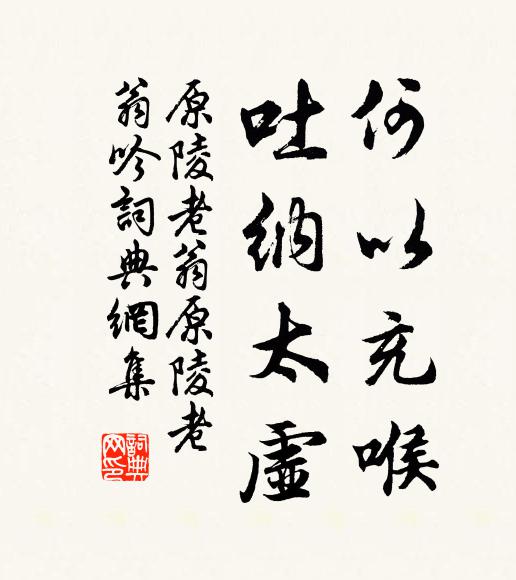 何以充喉
吐納太虛
原陵老翁原陵老
翁吟詞典網集
詞典
网印